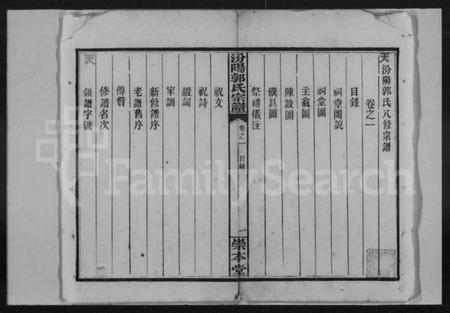 天
汾陽郭氏八修宗譜
卷之一
目錄
祠堂圖說
祠堂圖
主龕圖
陳設圖
儀具圖
祭禮儀注
汾陽郭氏宗譜
卷之一
目錄
一
崇本堂
祝文
祝詩
嘏詞
家訓
新修譜序
老譜舊序
傳贊
修譜名次
領譜字號
天
FamilySearch